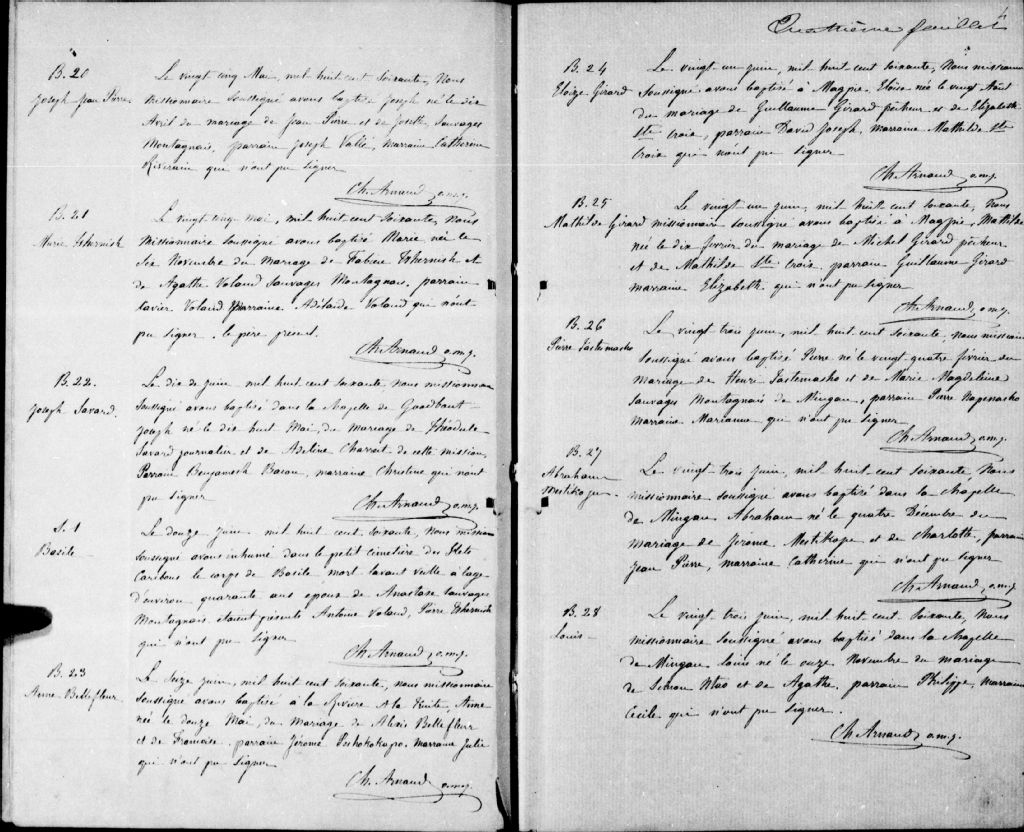 B. 20
Joseph Jean Pierre
Le vingt cinq Mai, mil huit cent soixante, Nous
missionnaire soussigné avons baptisé Joseph né le dix
Avril du mariage de Jean Pierre et de Josette, Sauvages
Montagnais, parrain Joseph Vallée, marraine Catherine
Riverain qui n'ont pu signer
Ch. Arnaud, o.m.j.
B. 21
Marie Ishernish
Le vingt cinq mai, mil huit cent soixante, nous
missionnaire soussigné avons baptisé Marie née le
six Novembre du mariage de Fabien Ishernish et
de Agathe Voland Sauvages Montagnais, parrain
Xavier Voland Marraine Adélaïde Voland qui n'ont
pu signer. le père présent.
Ch. Arnaud o.m.j.
B. 22.
Joseph Savard.
Le dix de juin, mil huit cent soixante nous missionnaire
soussigné avons baptisé dans la chapelle de Goodbout
Joseph né le dix huit Mai, du mariage de Théodule
Savard journalier et de Adeline Charest de cette mission,
Parrain Benjamin Bacon, marraine Christine qui n'ont
pu signer
Ch. Arnaud, o.m.j.
S. 1
Basile
Le douze juin, mil huit cent soixante, nous missionnaire
soussigné avons inhumé dans le petit cimetière des Ilets
Caribous le corps de Basile mort l'avant veille à l'age
d'environ quarante ans epoux de Anastase sauvages
Montagnais, étaient présents Antoine Voland, Pierre Ishernish
qui n'ont pu signer
Ch. Arnaud, o.m.j.
B. 23
Anne Bellefleur
Le seize juin, mil huit cent soixante, nous missionnaire
soussigné avons baptisé à la Rivière A la Truite, Anne
née le douze Mai, du mariage de Alexis Bellefleur
et de Françoise, parrain Jérome Ishokokapo, Marraine Julie
qui n'ont pu signer
Ch. Arnaud o.m.j.
4
Quatrième feuillet
B. 24
Eloize Girard
Le vingt un juin, mil huit cent soixante, Nous missionnaire
soussigné avons baptisé à Magpie, Eloise née le vingt Aout
du mariage de Guillaume Girard pêcheur et de Elizabeth
Ste Croix, parrain David Joseph, marraine Mathilde Ste
Croix qui n'ont pu signer
Ch. Arnaud o.m.j.
B. 25
Mathilde Girard
Le vingt un juin, mil huit cent soixante, Nous
missionnaire soussigné avons baptisé à Magpie, Mathilde
née le dix fevrier du mariage de Michel Girard pêcheur
et de Mathilde Ste Croix, parrain Guillaume Girard
marraine Elizabeth qui n'ont pu signer
Ch. Arnaud, o.m.j.
B. 26
Pierre Tastemasho
Le vingt trois juin, mil huit cent soixante, nous missionnaire
soussigné avons baptisé Pierre né le vingt quatre février du
mariage de Henri Tastemasho et de Marie Magdeleine
sauvages Montagnais de Mingan, parrain Pierre Napenasho
Marraine Marianne qui n'ont pu signer
Ch. Arnaud, o.m.j.
B. 27
Abraham
Mestikapu
Le vingt trois juin, mil huit cent soixante, Nous
missionnaire soussigné avons baptisé dans la chapelle
de Mingan Abraham né le quatre Decembre du
mariage de Jérome Mestikape et de Charlotte, parrain
Jean Pierre, marraine Catherine qui n'ont pu signer
Ch. Arnaud, o.m.j.
B. 28
Louis
Le vingt trois juin, mil huit cent soixante, Nous
missionnaire soussigné avons baptisé dans la chapelle
de Mingan Louis né le onze Novembre du mariage
de Simon et de Agathe, parrain Philippe, Marraine
Cecile qui n'ont pu signer.
Ch. Arnaud o.m.j.